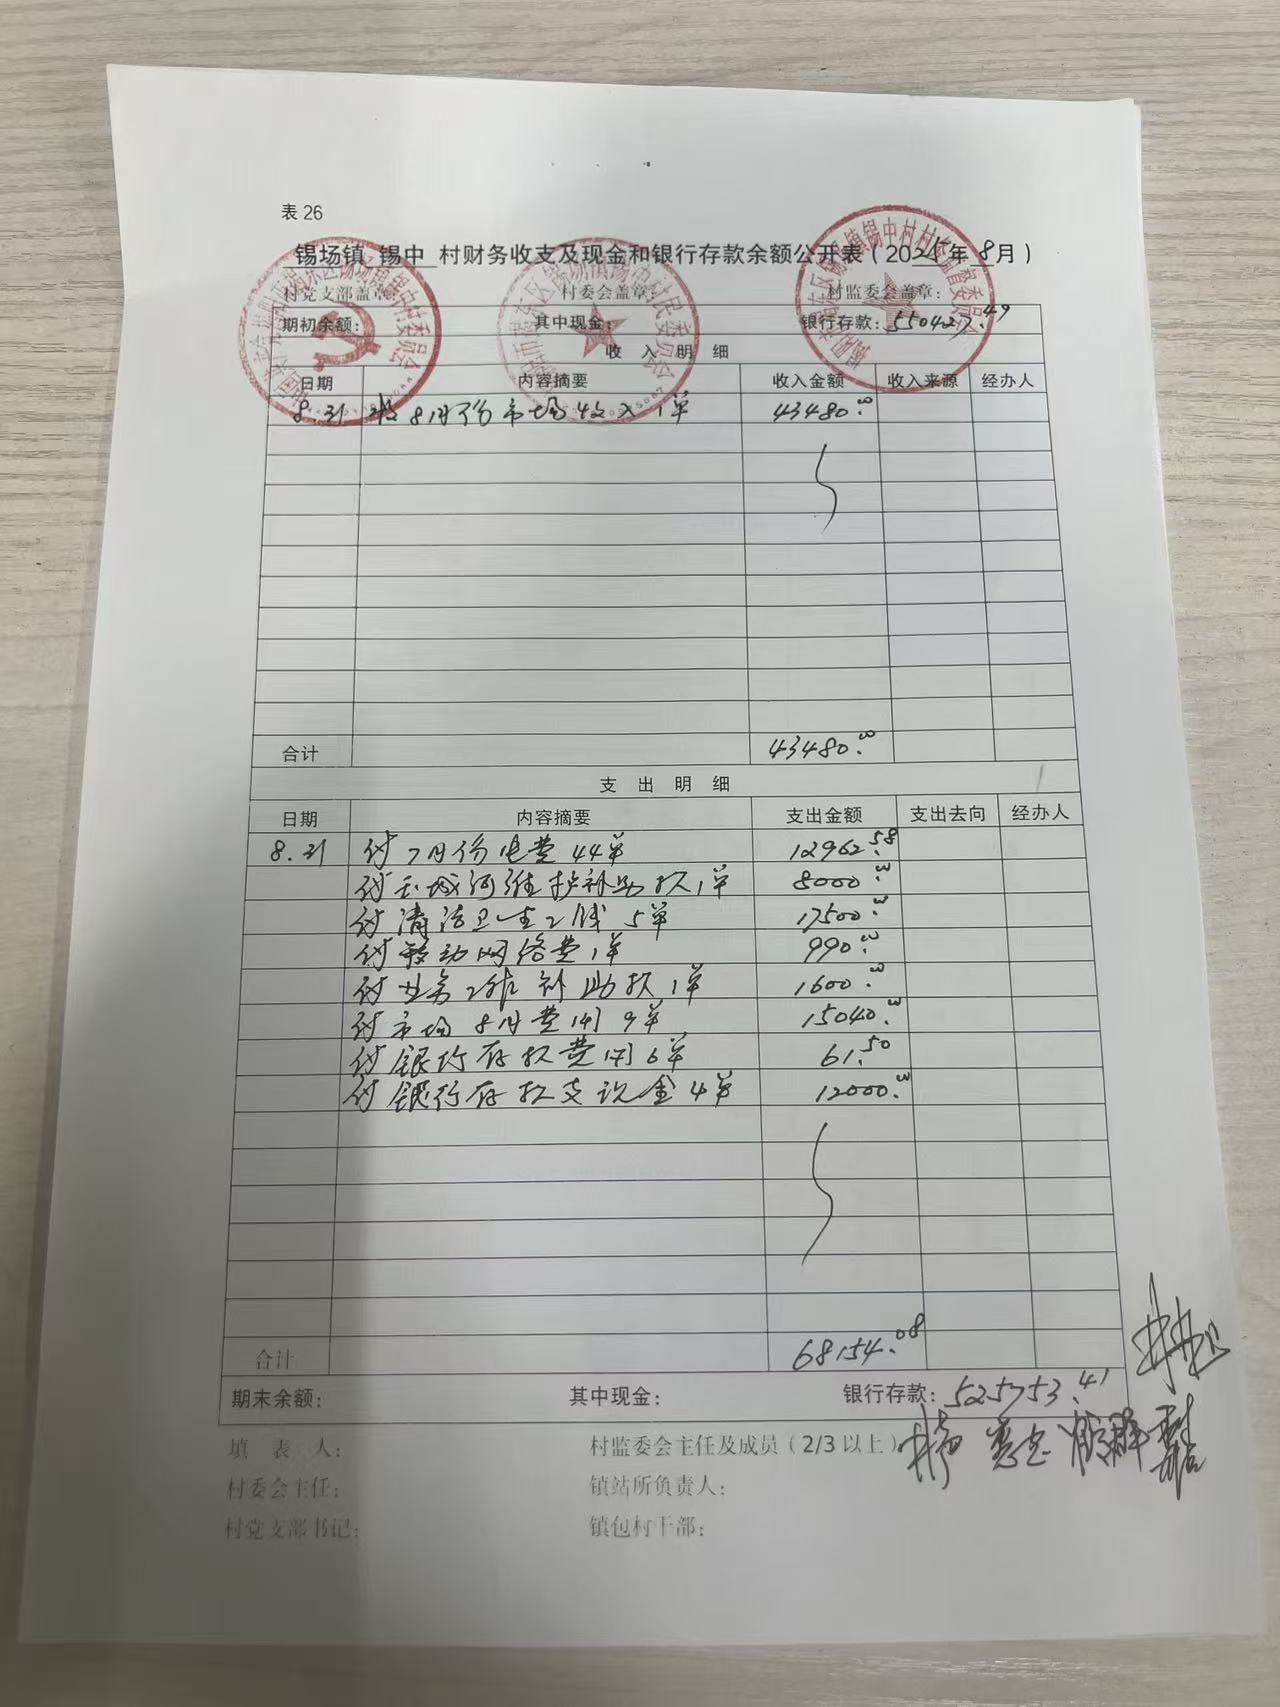 表 26
锡场镇 锡中 村财务收支及现金和银行存款余额公开表(2025年 8月)
村党支部盖章: 村委会盖章: 村监委会盖章:
期初余额: 其中现金: 银行存款: 550427.49
收 入 明 细
日期 内容摘要 收入金额 收入来源 经办人
8.31 收8月份市场收入1单 43480.00
合计 43480.00
支 出 明 细
日期 内容摘要 支出金额 支出去向 经办人
8.31 付7月份电费44单 12962.58
付玉城河维护补助款1单 8000.00
付清洁卫生工钱5单 17500.00
付移动网络费1单 990.00
付业务工作补助款1单 1600.00
付市场8月费用9单 15040.00
付银行存款费用6单 61.50
付银行存款支现金4单 12000.00
合计 68154.08
期末余额: 其中现金: 银行存款: 525753.41
填 表 人: 村监委会主任及成员(2/3以上)
村委会主任: 镇站所负责人:
村党支部书记: 镇包村干部: